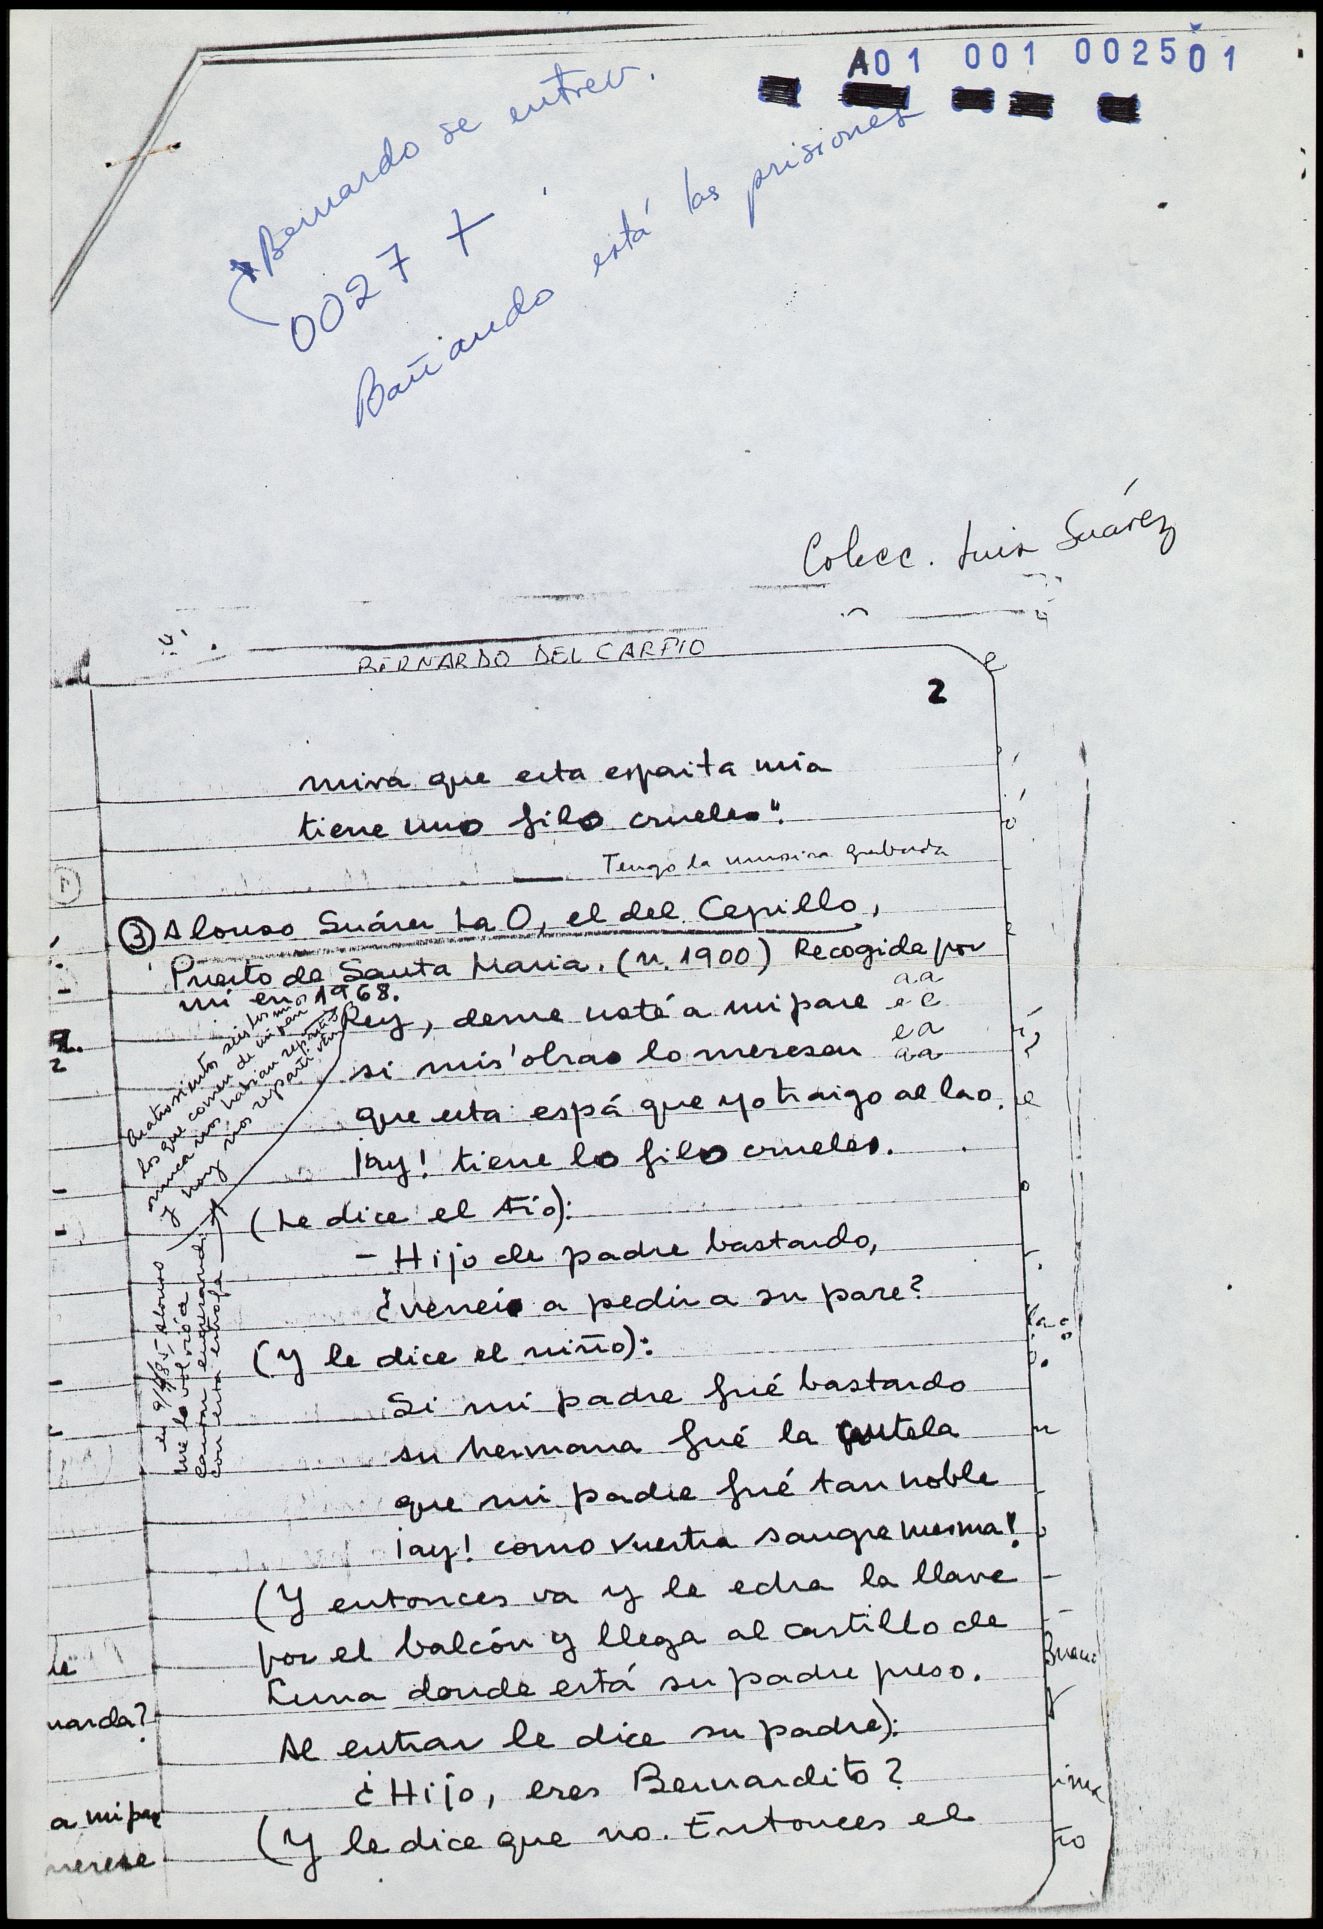 A01 001 002501
Bernardo se entrev.
0027 +
Bañando está las prisiones
Colecc. Luis Suárez
BERNARDO DEL CARPIO
2
mira que esta espaita mia
tiene uno filo crueles".
Tengo la muestra grabada
③ Alonso Suárez La O, el del Cepillo,
Puerto de Santa Maria. (n. 1900) Recogida por
mí en 1968.
Rey, deme usté a mi pare
si mis' obras lo meresen
que esta espá que yo traigo al lao.
¡ay! tiene lo filo crueles.
aa
ee
ea
aa
cuatrosientos seis los mios
los que comen de mi pan
nunca nos habian repartio
y hoy nos reparti
en 9/4/85, Alonso
me lo volvió a
cantar
con esta estrofa
(Le dice el tío):
- Hijo de padre bastardo,
¿veneis a pedir a su pare?
(Y le dice el niño):
Si mi padre fué bastardo
su hermana fué la
que mi padre fué tan noble
¡ay! como vuestra sangre mesma!
(Y entonces va y le echa la llave
por el balcón y llega al castillo de
Luna donde está su padre preso.
Al entrar le dice su padre):
¿Hijo, eres Bernardito?
(Y le dice que no. Entonces el
narda?
a mi pare
merese